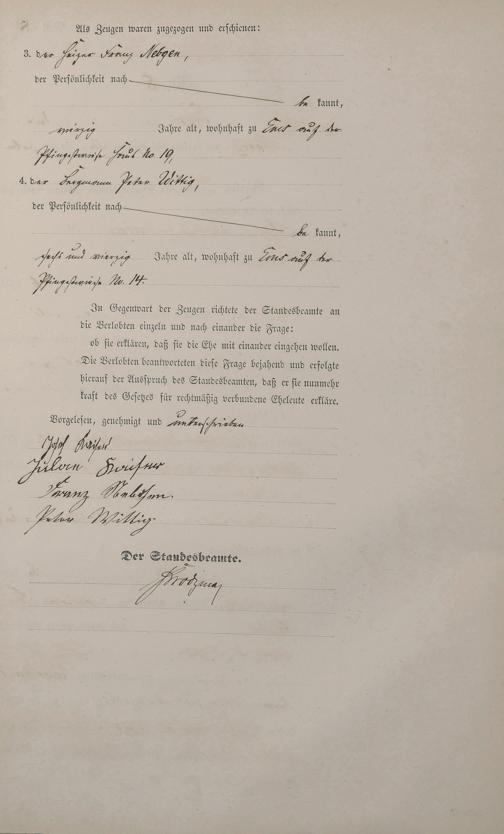 Als Zeugen waren zugezogen und erschienen:
3. der Heizer Franz Nebgen,
der Persönlichkeit nach
be kannt,
vierzig Jahre alt, wohnhaft zu Ems auf der
Pfingstwiese Haus No 19,
4. der Bergmann Peter Wittig,
der Persönlichkeit nach
be kannt,
sechs und vierzig Jahre alt, wohnhaft zu Ems auf der
Pfingstwiese No. 14.
In Gegenwart der Zeugen richtete der Standesbeamte an
die Verlobten einzeln und nach einander die Frage:
ob sie erklären, daß sie die Ehe mit einander eingehen wollen.
Die Verlobten beantworteten diese Frage bejahend und erfolgte
hierauf der Ausspruch des Standesbeamten, daß er sie nunmehr
kraft des Gesetzes für rechtmäßig verbundene Eheleute erkläre.
Vorgelesen, genehmigt und unterschrieben
Josef
Franz
Peter Wittig
Der Standesbeamte.